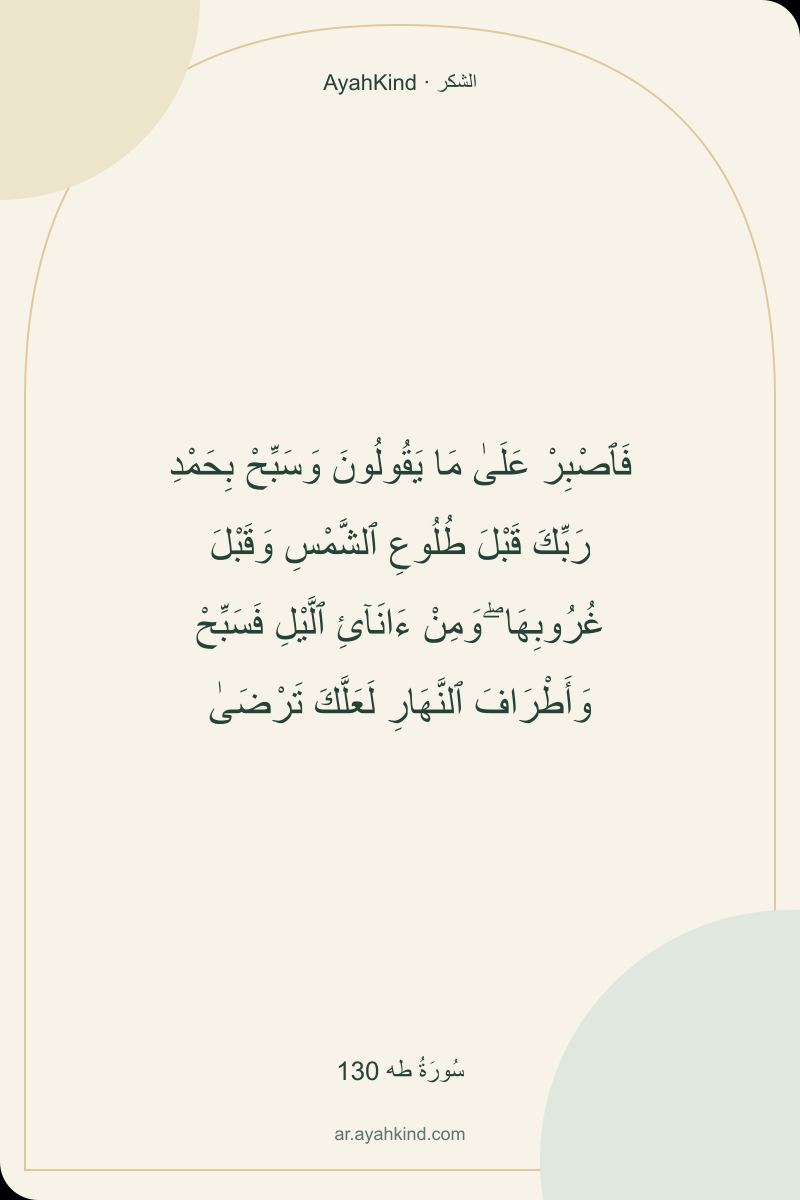 AyahKind · الشكر
فَٱصْبِرْ عَلَىٰ مَا يَقُولُونَ وَسَبِّحْ بِحَمْدِ
رَبِّكَ قَبْلَ طُلُوعِ ٱلشَّمْسِ وَقَبْلَ
غُرُوبِهَا ۖ وَمِنْ ءَانَآئِ ٱلَّيْلِ فَسَبِّحْ
وَأَطْرَافَ ٱلنَّهَارِ لَعَلَّكَ تَرْضَىٰ
سُورَةُ طه 130
ar.ayahkind.com